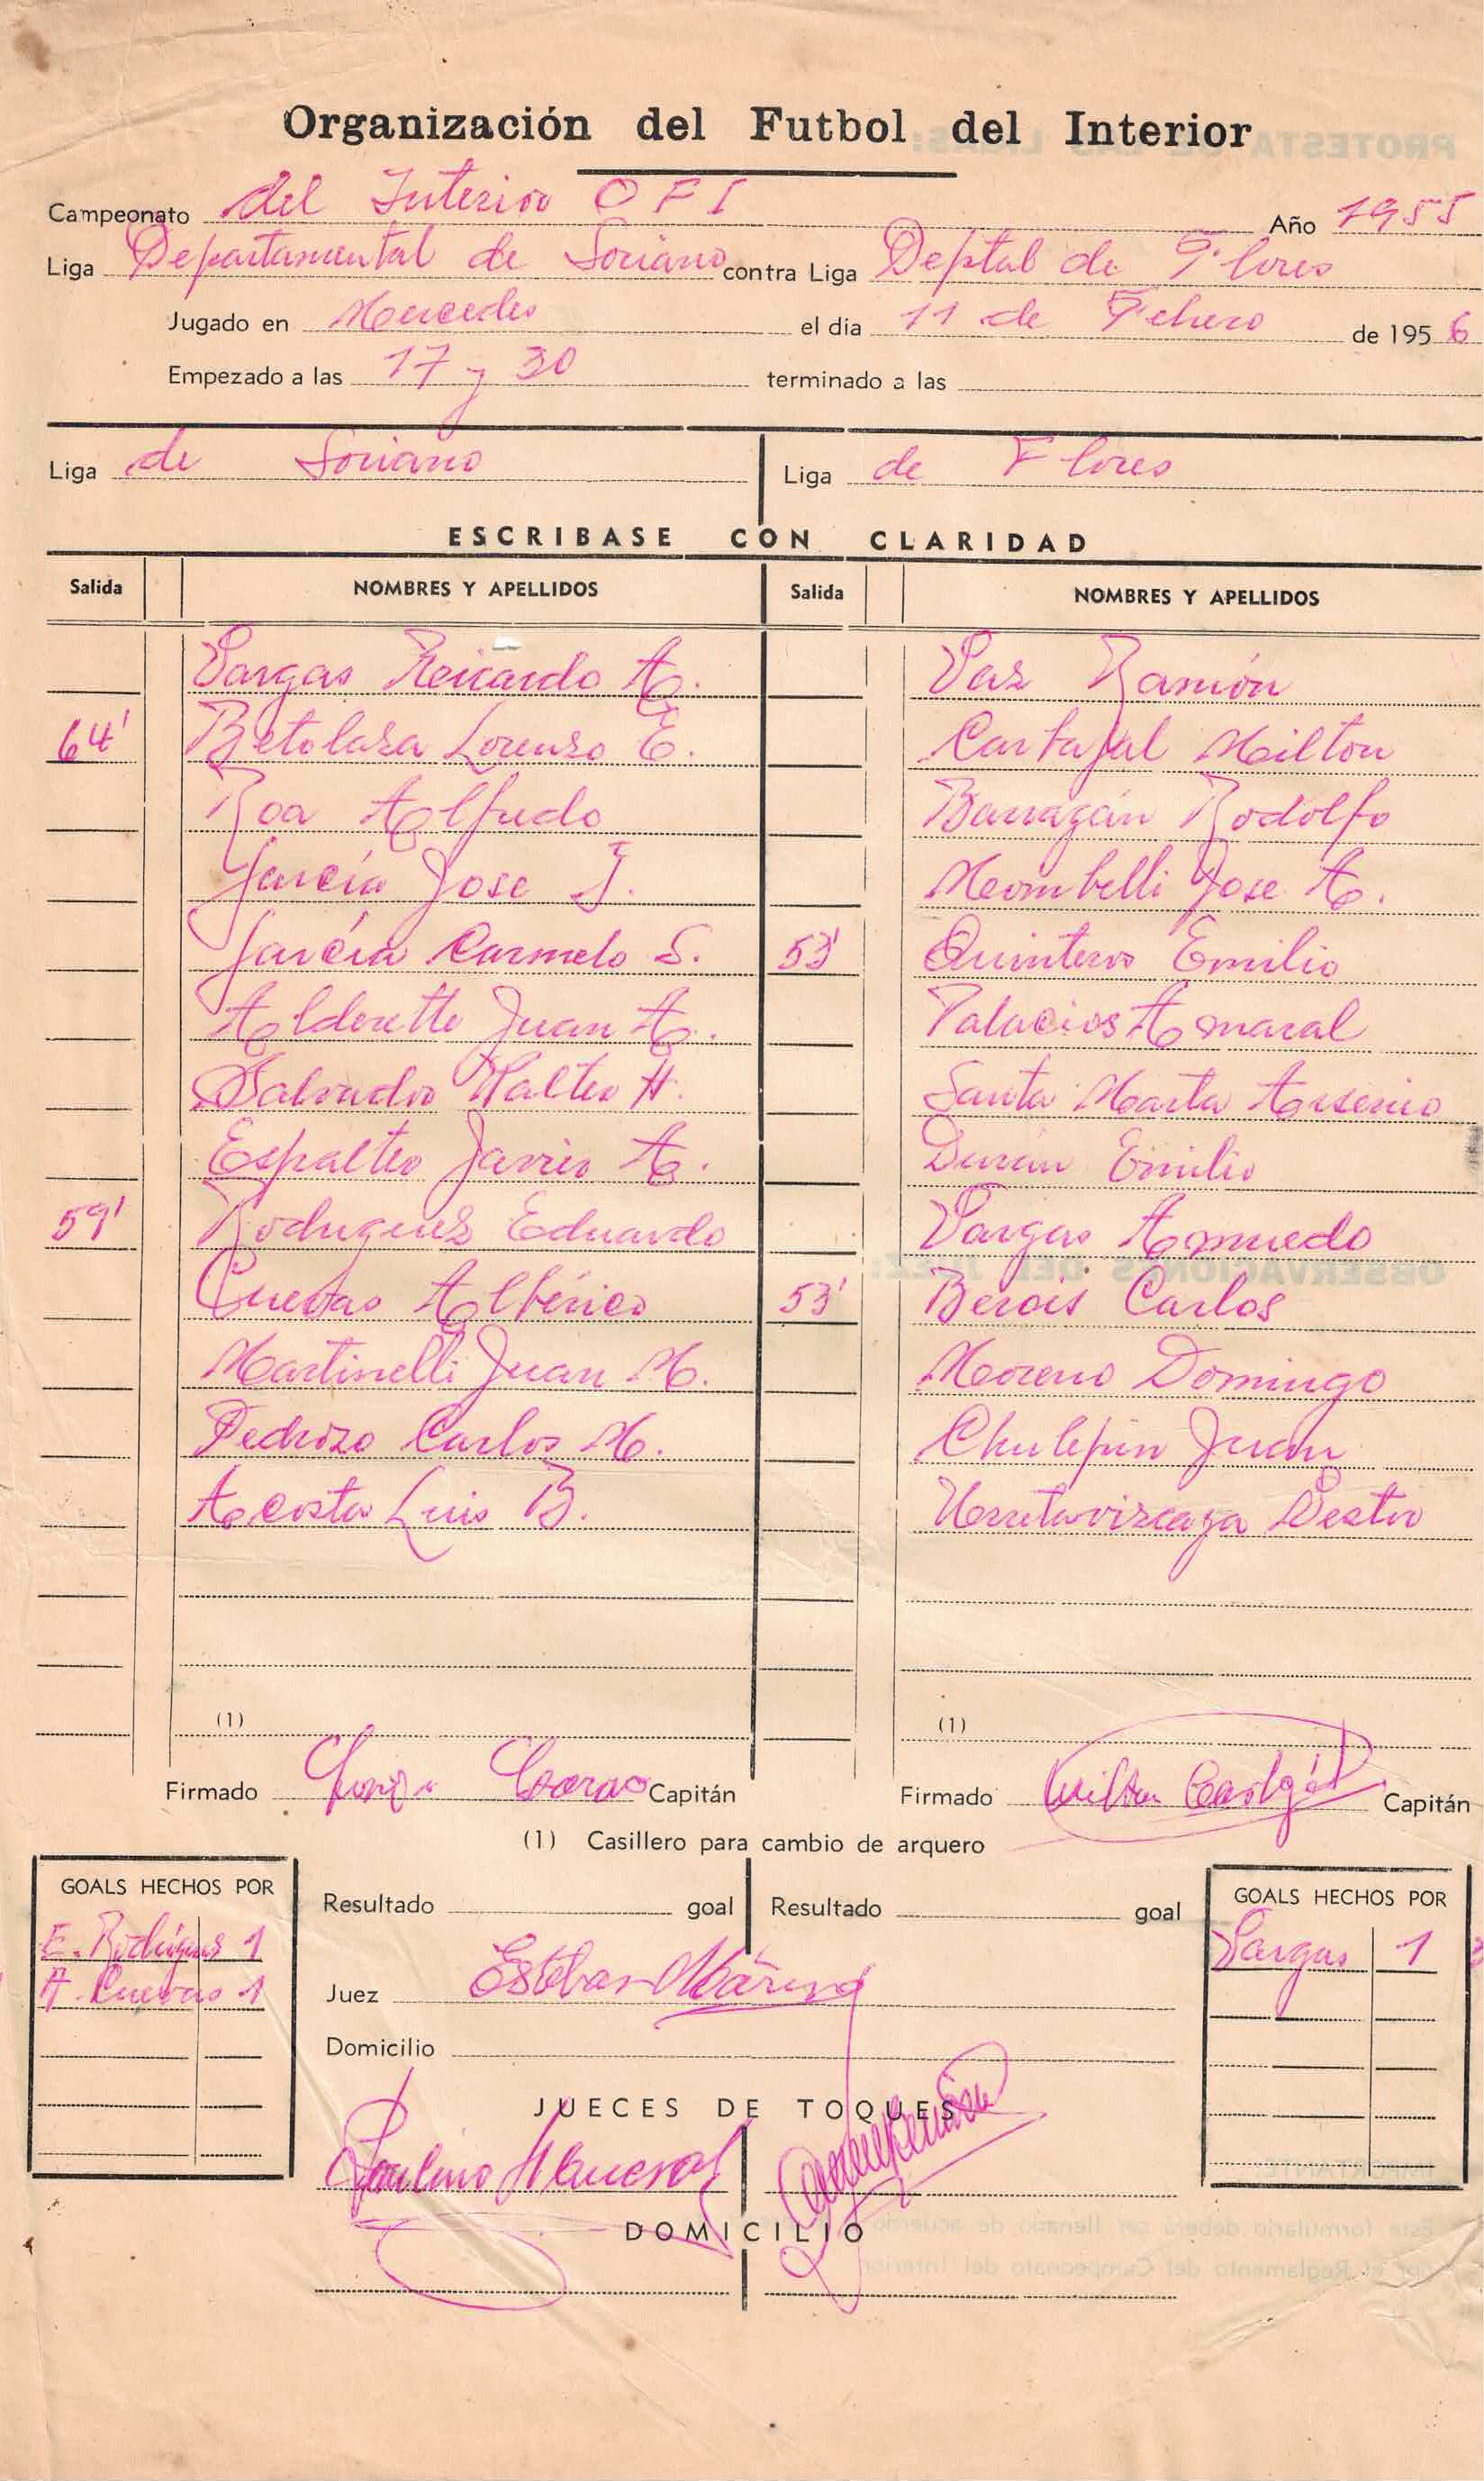 Organización del Futbol del Interior
Campeonato del Interior O F I Año 1955
Liga Departamental de Soriano contra Liga Deptal de Flores
Jugado en Mercedes el dia 11 de Febrero de 1956
Empezado a las 17 y 30 terminado a las
Liga de Soriano Liga de Flores
ESCRIBASE CON CLARIDAD
Salida NOMBRES Y APELLIDOS Salida NOMBRES Y APELLIDOS
Vargas Ricardo A. Vaz Ramón
64' Betolaza Lorenzo E. Carbajal Milton
Roa Alfredo Barragán Rodolfo
García Jose J. Mombelli Jose A.
García Carmelo S. 53' Quinteros Emilio
Alderette Juan A. Palacios Amaral
Salvador Walter H. Santa Marta Arsenio
Espalter Javier A. Durán Emilio
59' Rodriguez Eduardo Vargas Asmuedo
Cuevas Albérico 53' Berois Carlos
Martinelli Juan M. Moreno Domingo
Pedrozo Carlos M. Chulepin Juan
Acosta Luis B. Urrutavizcaya Nestor
(1) (1)
Firmado Capitán Firmado Milton Capitán
(1) Casillero para cambio de arquero
GOALS HECHOS POR Resultado goal Resultado goal GOALS HECHOS POR
E. Rodriguez 1 Vargas 1
A. Cuevas 1
Juez Esteban Marino
Domicilio
JUECES DE TOQUES
DOMICILIO
PROTESTA DE LAS LIGAS:
OBSERVACIONES DEL JUEZ:
IMPORTANTE
Este formulario deberá ser llenado de acuerdo
por el Reglamento del Campeonato del Interior